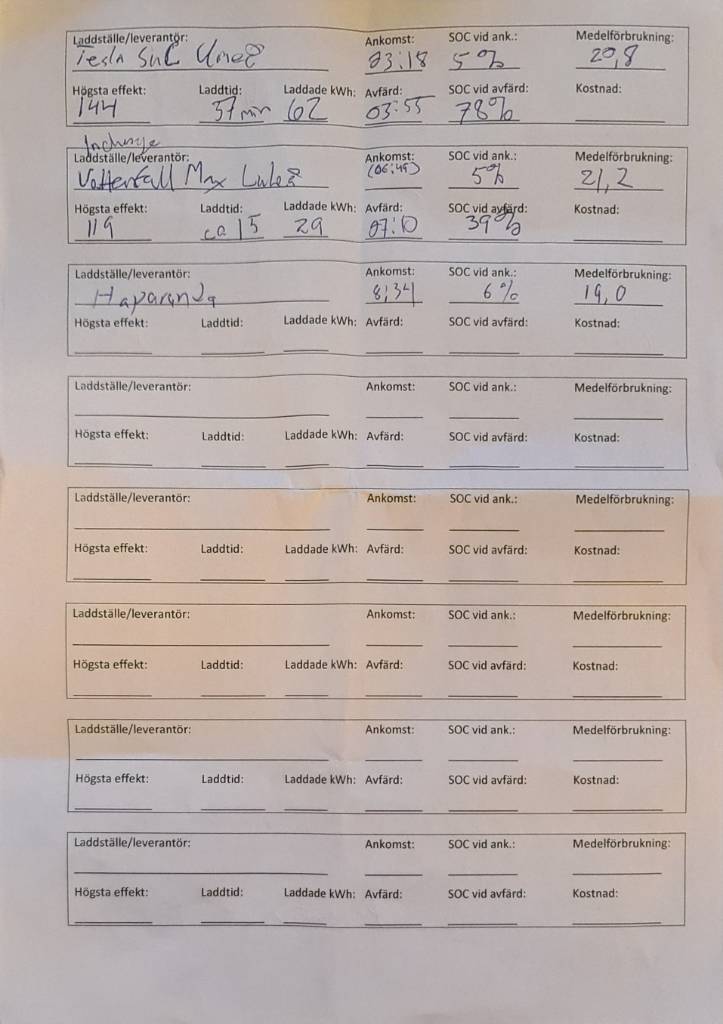 Laddställe/leverantör: Ankomst: SOC vid ank.: Medelförbrukning:
Tesla SuC Umeå 03:18 5% 20,8
Högsta effekt: Laddtid: Laddade kWh: Avfärd: SOC vid avfärd: Kostnad:
144 37 min 62 03:55 78%
Laddställe/leverantör: Ankomst: SOC vid ank.: Medelförbrukning:
Vattenfall Max Luleå (06:45) 5% 21,2
Högsta effekt: Laddtid: Laddade kWh: Avfärd: SOC vid avfärd: Kostnad:
119 ca 15 29 07:10 39%
Laddställe/leverantör: Ankomst: SOC vid ank.: Medelförbrukning:
Haparanda 8:34 6% 19,0
Högsta effekt: Laddtid: Laddade kWh: Avfärd: SOC vid avfärd: Kostnad:
Laddställe/leverantör: Ankomst: SOC vid ank.: Medelförbrukning:
Högsta effekt: Laddtid: Laddade kWh: Avfärd: SOC vid avfärd: Kostnad:
Laddställe/leverantör: Ankomst: SOC vid ank.: Medelförbrukning:
Högsta effekt: Laddtid: Laddade kWh: Avfärd: SOC vid avfärd: Kostnad:
Laddställe/leverantör: Ankomst: SOC vid ank.: Medelförbrukning:
Högsta effekt: Laddtid: Laddade kWh: Avfärd: SOC vid avfärd: Kostnad:
Laddställe/leverantör: Ankomst: SOC vid ank.: Medelförbrukning:
Högsta effekt: Laddtid: Laddade kWh: Avfärd: SOC vid avfärd: Kostnad:
Laddställe/leverantör: Ankomst: SOC vid ank.: Medelförbrukning:
Högsta effekt: Laddtid: Laddade kWh: Avfärd: SOC vid avfärd: Kostnad: